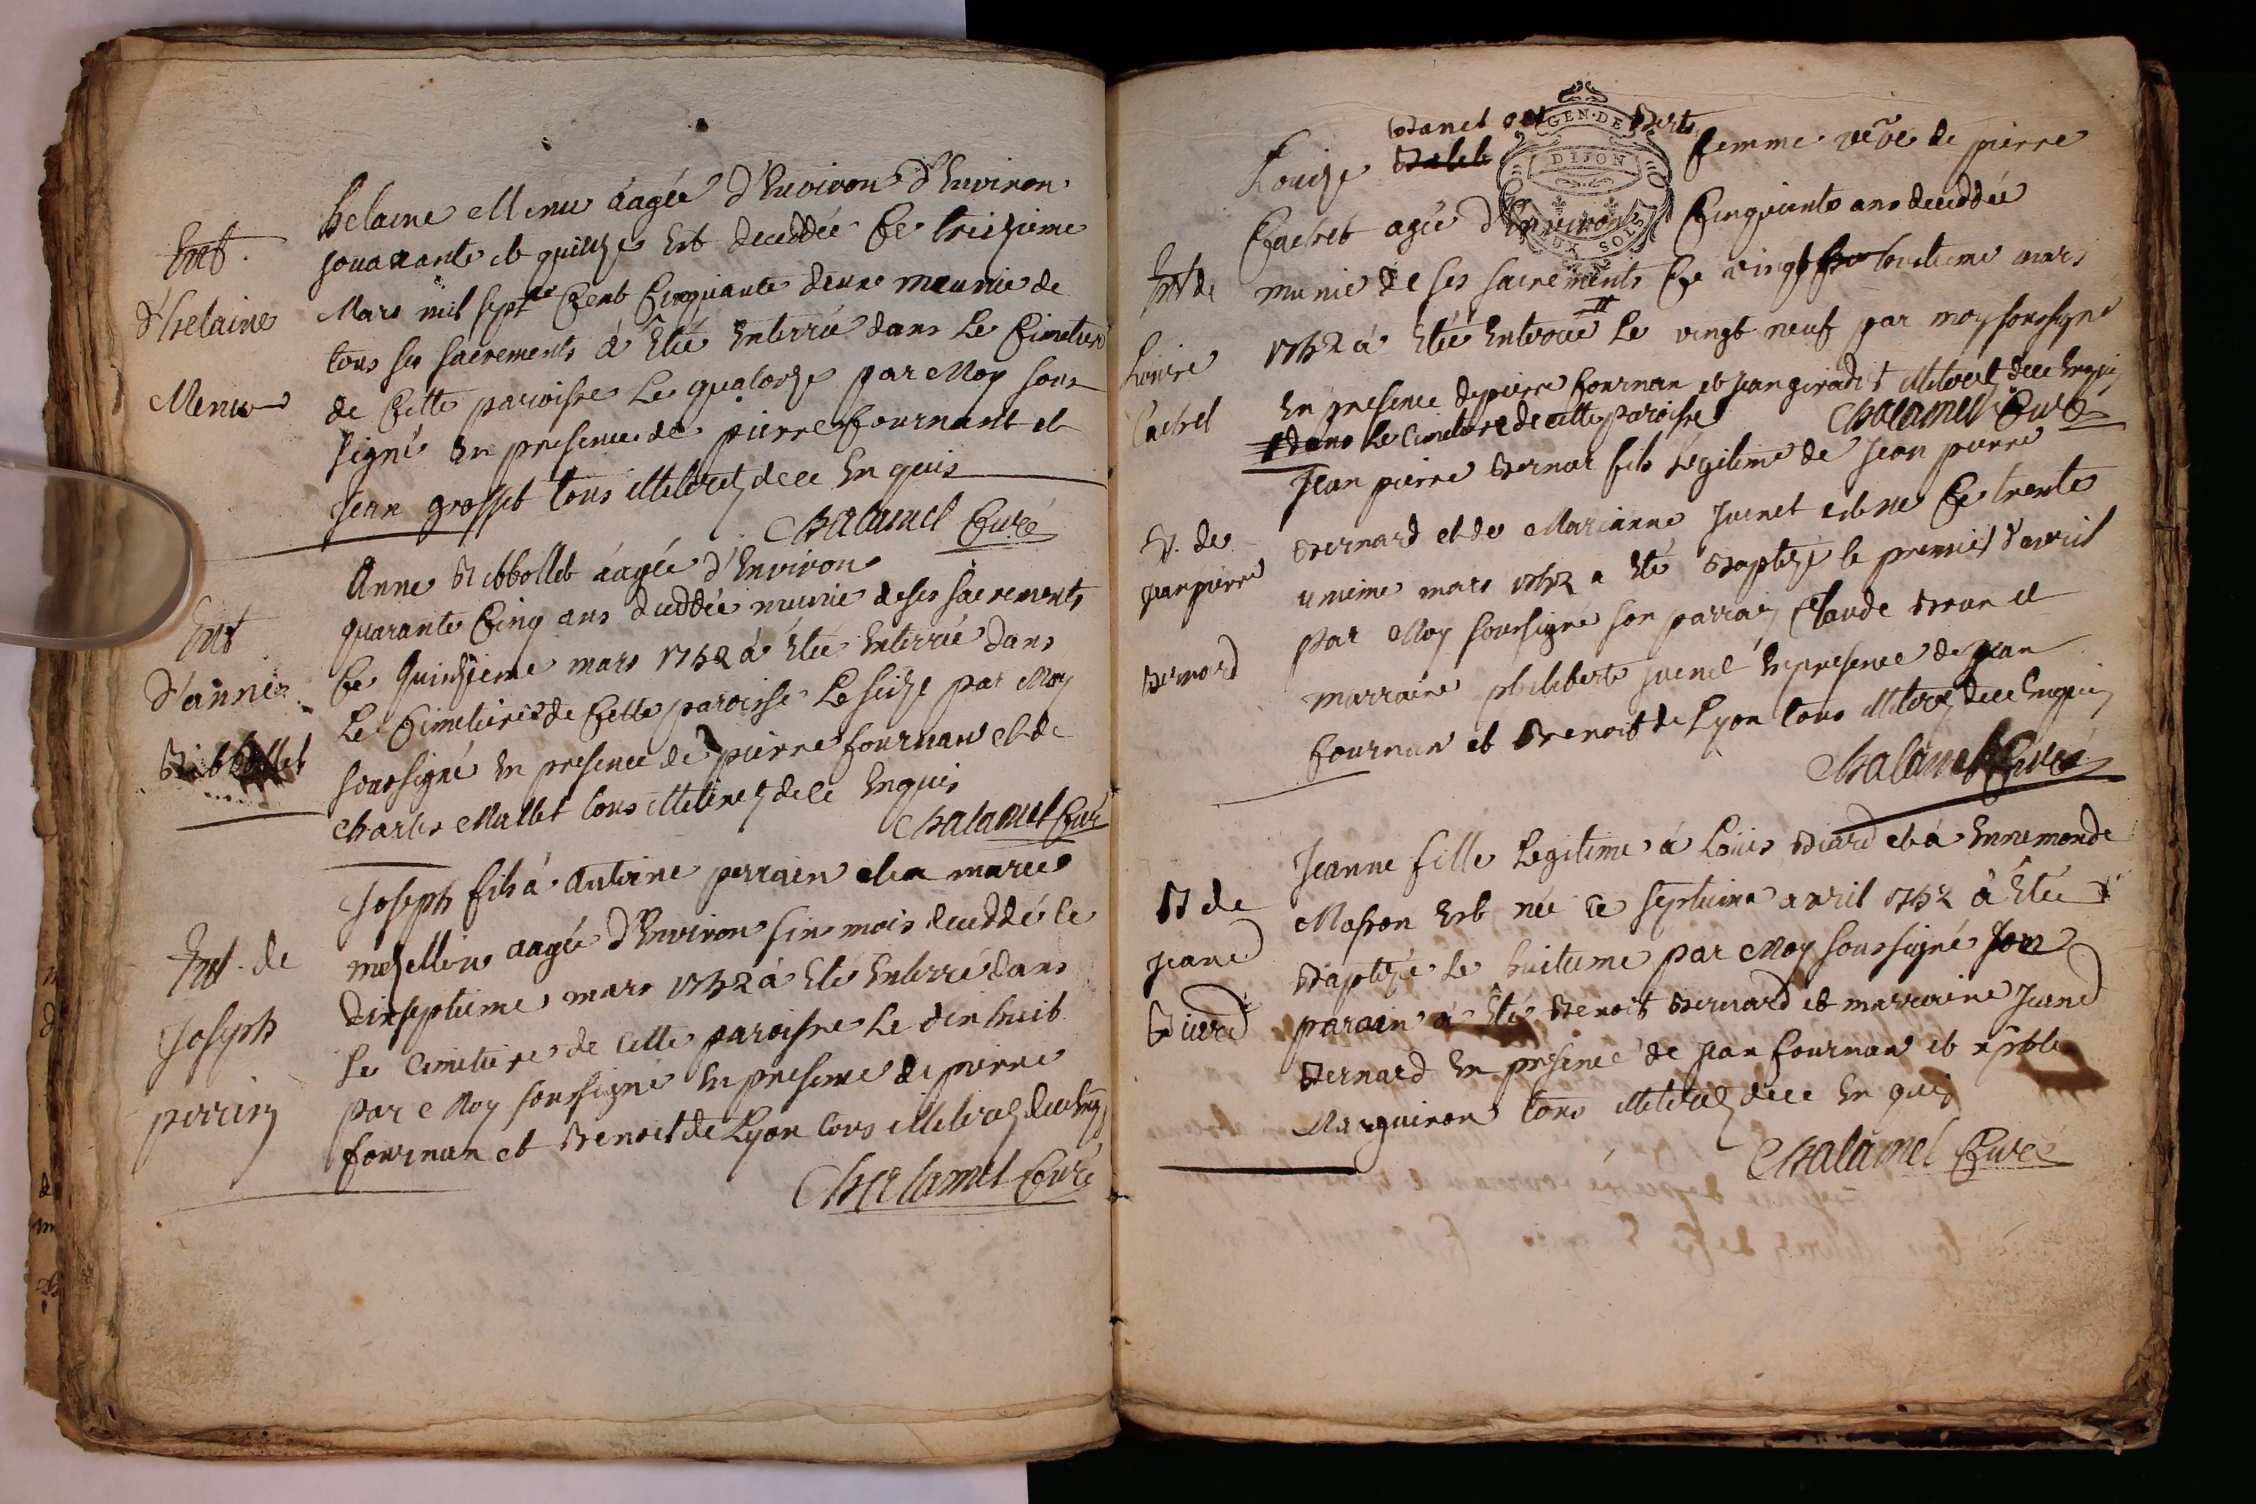 Ent.
d'helaine
Menu
helaine Menu aagée d'Environ d'Environ
soixante et quinze Est deceddée Ce treizieme
Mars mil sept Cent Cinquante deux munie de
tous ses sacrements à Eté Enterrée dans Le Cimetiere
de Cette paroisse Le quatorze par Moy sous
signé En presence de pierre fournant et
Jean grosset tous illiterez de ce Enquis
Chalamel Curé
Ent
d'anne
Ribbollet
Anne Ribbollet aagée d'Environ
quarante Cinq ans deceddée munie de ses sacrements
Ce Quinzieme mars 1752 à Eté Enterrée dans
Le Cimetiere de Cette paroisse Le Seize par Moy
soussigné En presence de pierre fournan et de
Charles Mallet tous illiterez de ce Enquis
Chalamel Curé
Ent. de
Joseph
perrin
Joseph fils à Antoine perrain et a marie
mezellin aagée d'Environ six mois deceddé le
dixseptieme mars 1752 à Eté Enterré dans
Le Cimetiere de Cette paroisse Le dixhuit
par Moy soussigné En presence de pierre
fournan et Benoit de Lyon tous illiterez de ce Enq
Chalamel Curé
GEN. DE
DIJON
DEUX SOLS
Ent de
Louise
Cachet
Louize femme veuve de pierre
Cachet agée d'Environ Cinquante ans deceddée
munie de ses sacrements Ce vingt huitieme mars
1752 à Eté Enterrée # Le vingt neuf par moy soussigné
En presence de pierre fournan et Jean giradit illiterez de ce Enquis
# dans Le Cimetiere de cette paroisse Chalamel Curé
B. de
Jean pierre
Bernard
Jean pierre Bernar fils Legitime de Jean pierre
Bernard et de Marianne Juenet est né Ce trente
unieme mars 1752 a Eté Baptizé le premier d'avril
par Moy soussigné son parrain Claude Brun et
marraine philiberte Juenet En presence de Jean
fournan et Benoit de Lyon tous illiterez de ce Enquis
Chalamel Curé
B de
Jeane
Biard
Jeanne fille Legitime à Loüis Biard et à Ennemonde
Masson Est née Ce septieme avril 1752 à Eté
Baptizée Le huitieme par Moy soussigné son
parain à Eté Benoit Bernard et marraine Jeane
Bernard En presence de Jean fournan et
Marguiron tous illiterez de ce Enquis
Chalamel Curé